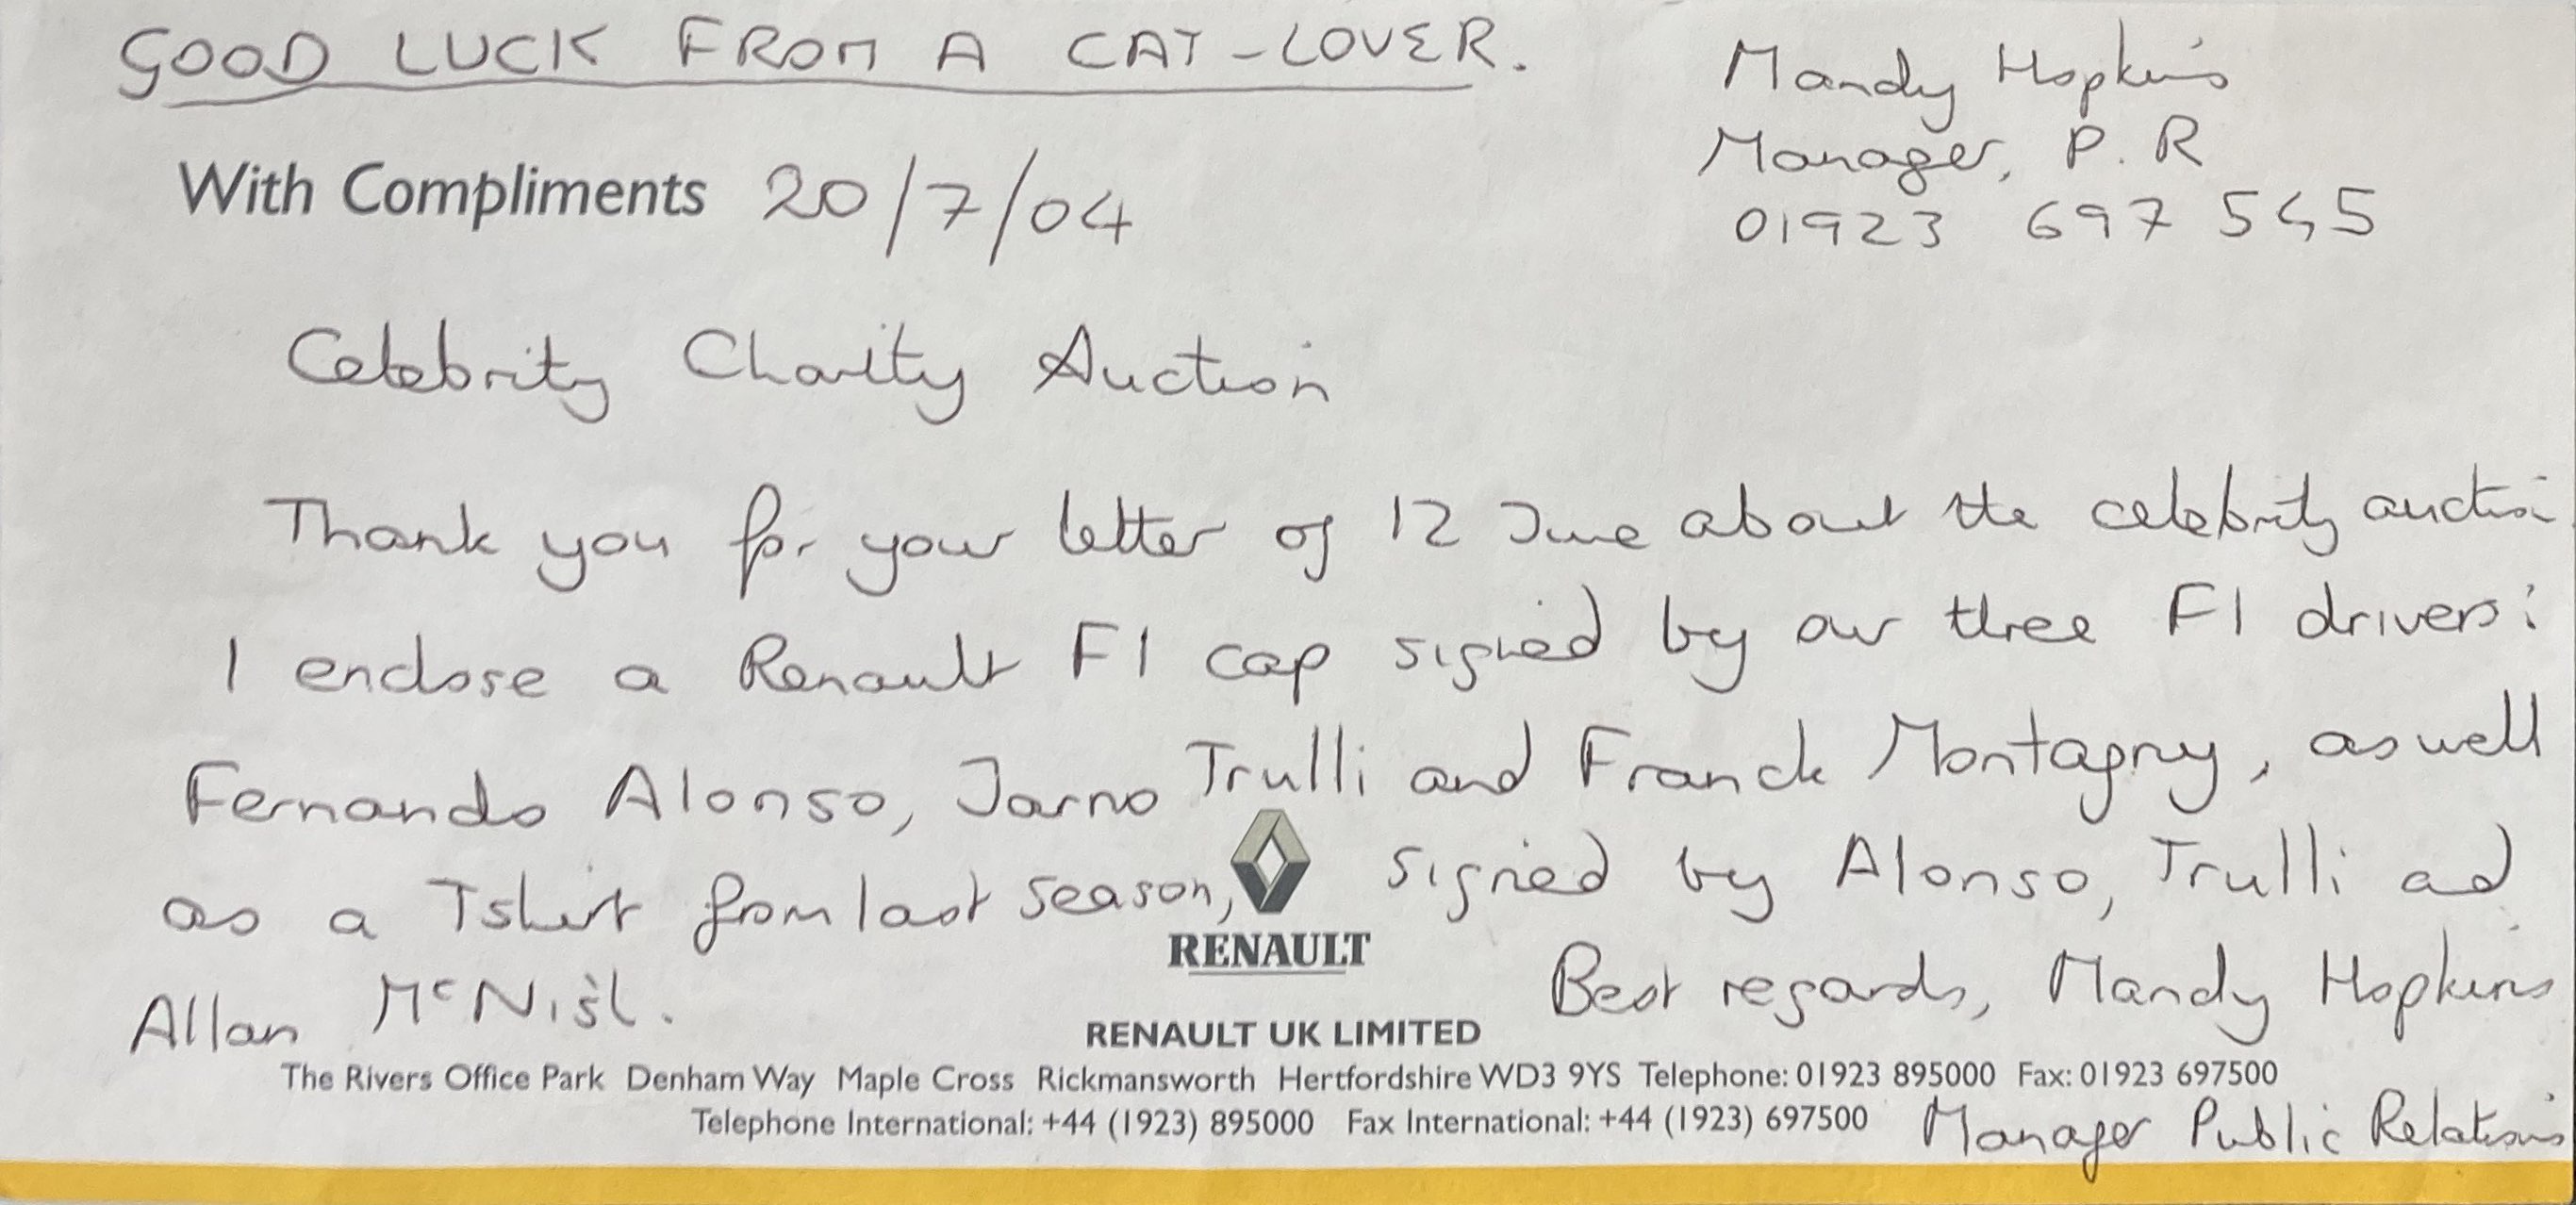 GOOD LUCK FROM A CAT-LOVER.
Mandy Hopkins
Manager, P.R
01923 697 545
With Compliments 20/7/04
Celebrity Charity Auction
Thank you for your letter of 12 June about the celebrity auction
I enclose a Renault F1 cap signed by our three F1 drivers:
Fernando Alonso, Jarno Trulli and Franck Montagny, as well
as a Tshirt from last season, signed by Alonso, Trulli ad
Allan McNish.
Best regards, Mandy Hopkins
Manager Public Relations
RENAULT
RENAULT UK LIMITED
The Rivers Office Park Denham Way Maple Cross Rickmansworth Hertfordshire WD3 9YS Telephone: 01923 895000 Fax: 01923 697500
Telephone International: +44 (1923) 895000 Fax International: +44 (1923) 697500